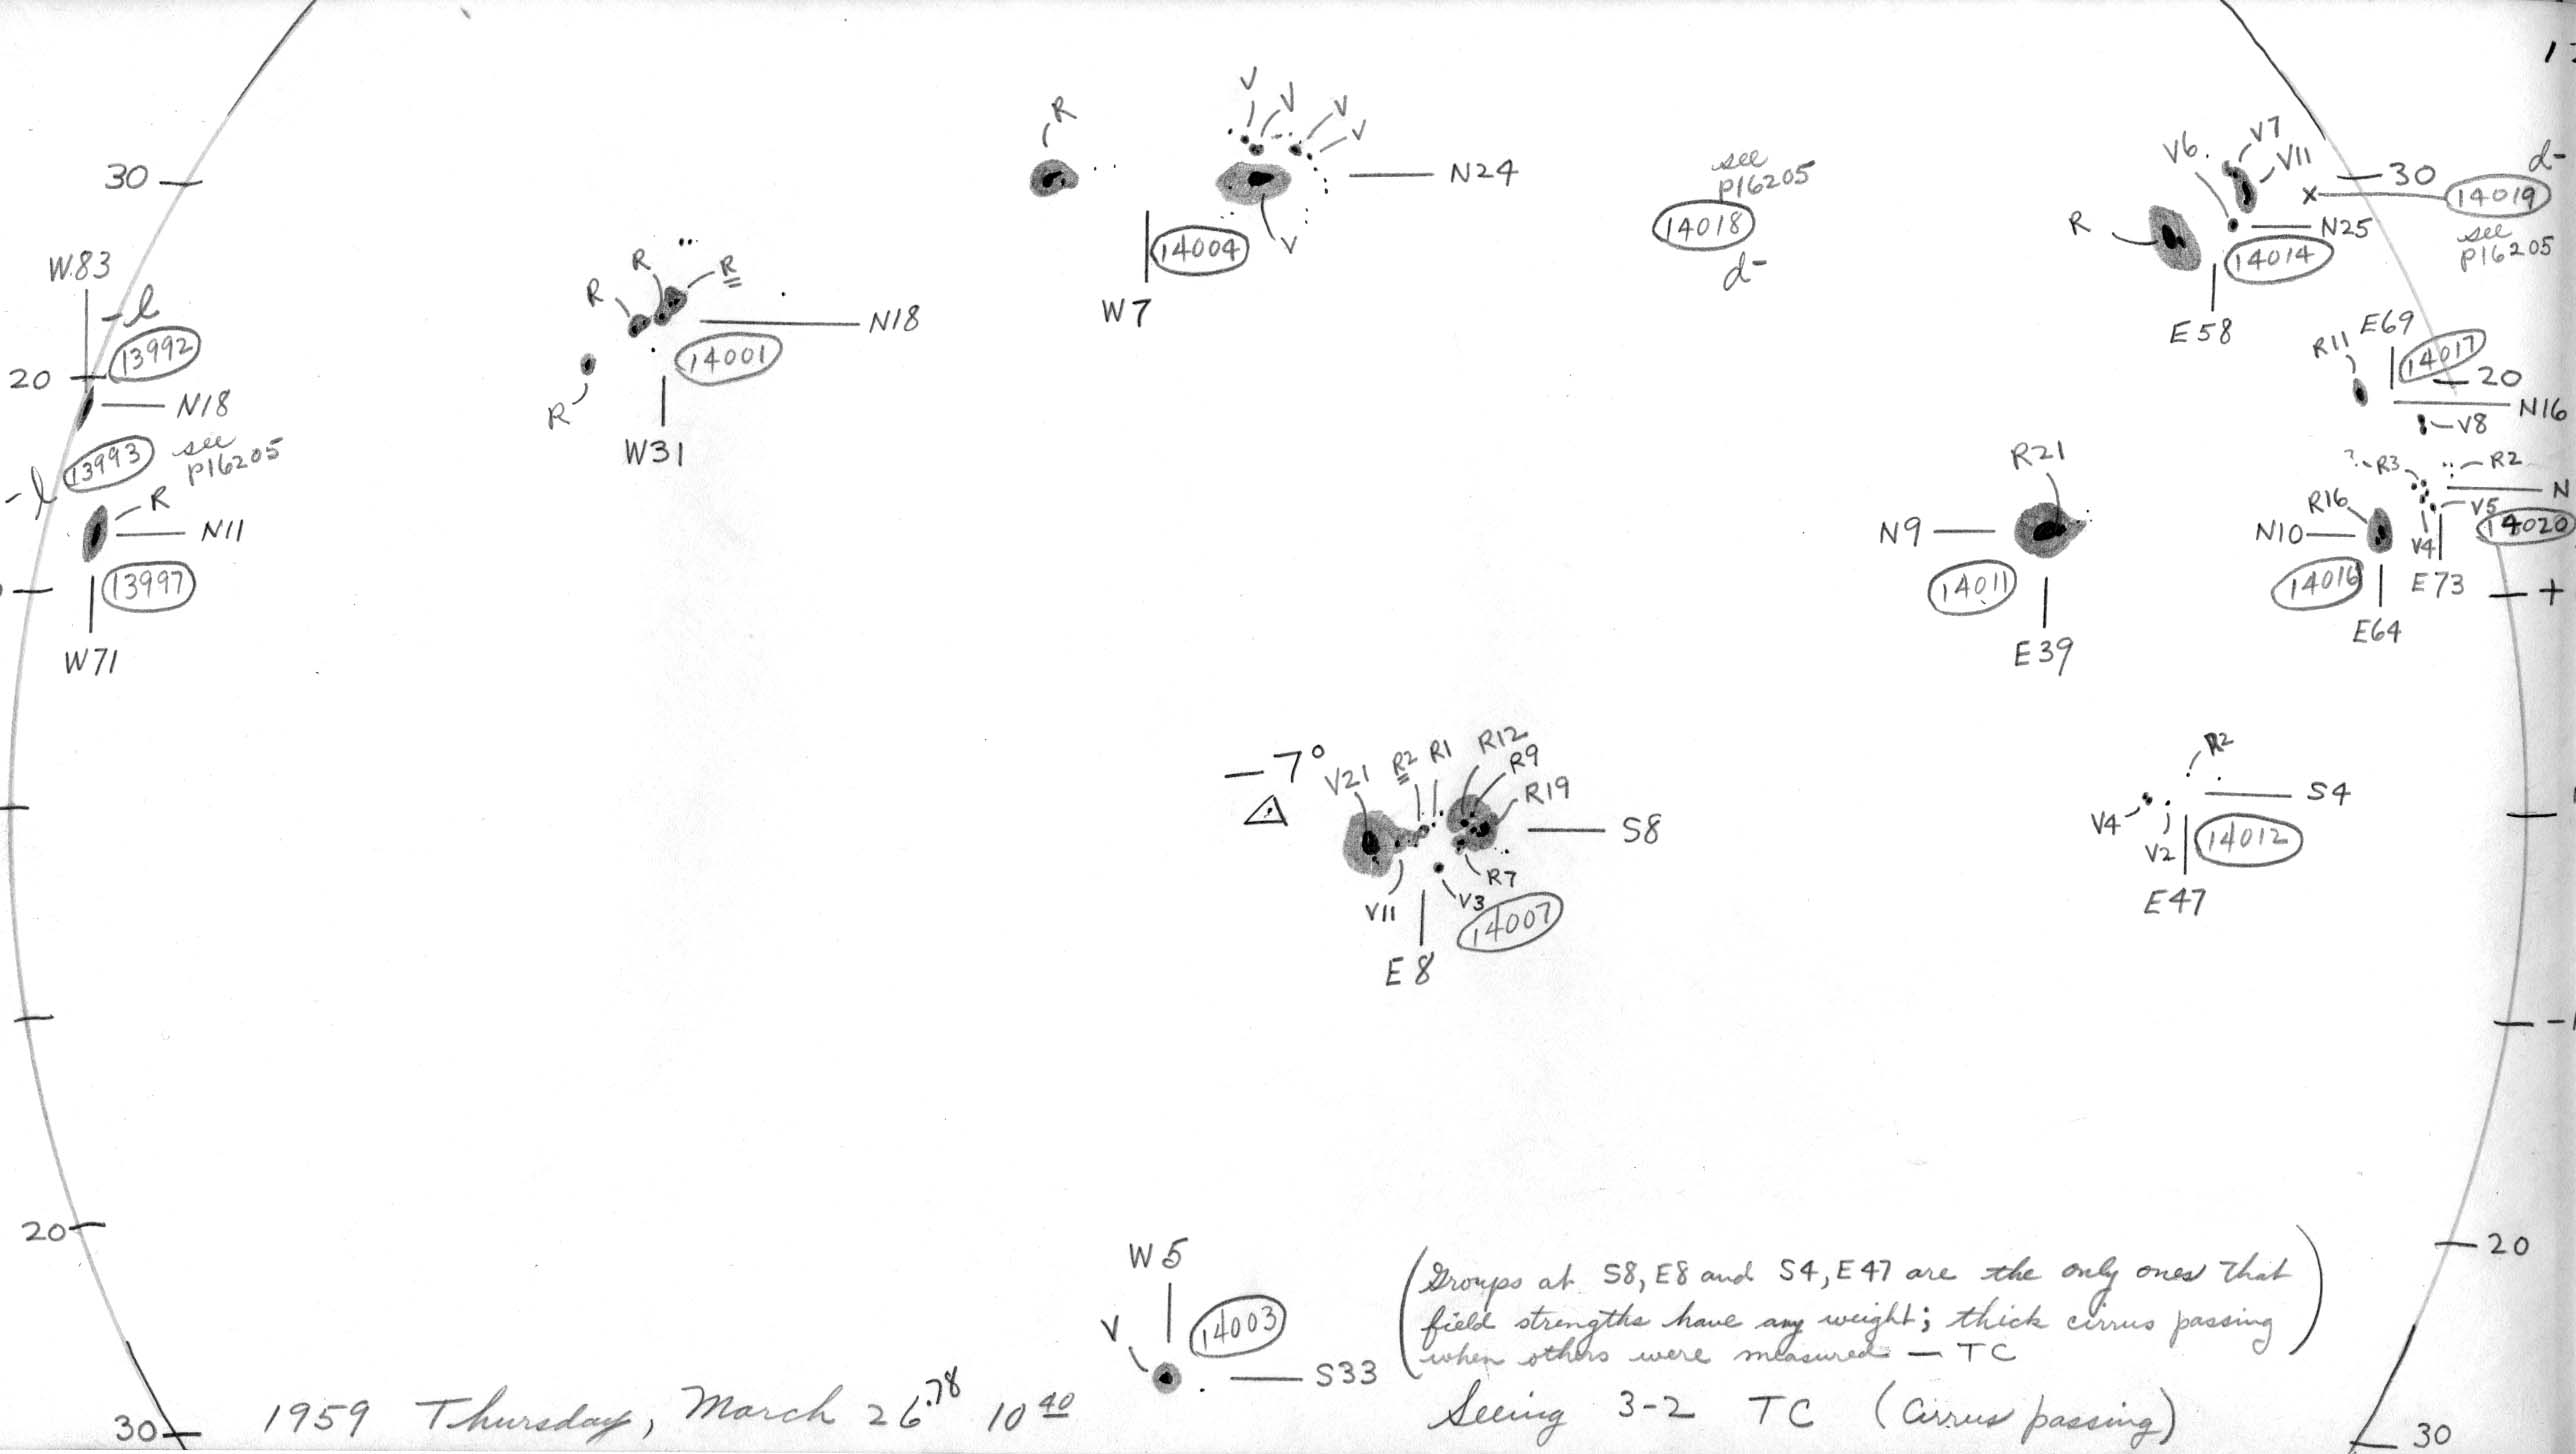 V V V V
R
30
N24
see
p16205
14018
d-
V
14004
W7
V6 V7 V11
30
d-
14019
see
p16205
R
N25
14014
E58
W83
-l
13992
20
N18
13993
see
p16205
-l
R
N11
13997
W71
R R R
N18
14001
R
W31
R11 E69
14017
20
N16
V8
R21
?-R3 R2
N
N9
R16
V5
14020
N10
V4
14011
14016
E73
+
E39
E64
-7°
V21 R2 R1 R12
R9
R19
S8
R7
V11 V3
14007
E8
R2
S4
V4
V2
14012
E47
20
20
W5
14003
V
S33
(Groups at S8, E8 and S4, E47 are the only ones that
field strengths have any weight; thick cirrus passing
when others were measured — TC)
1959 Thursday, March 26.78 10 40
Seeing 3-2 TC (Cirrus passing)
30
30